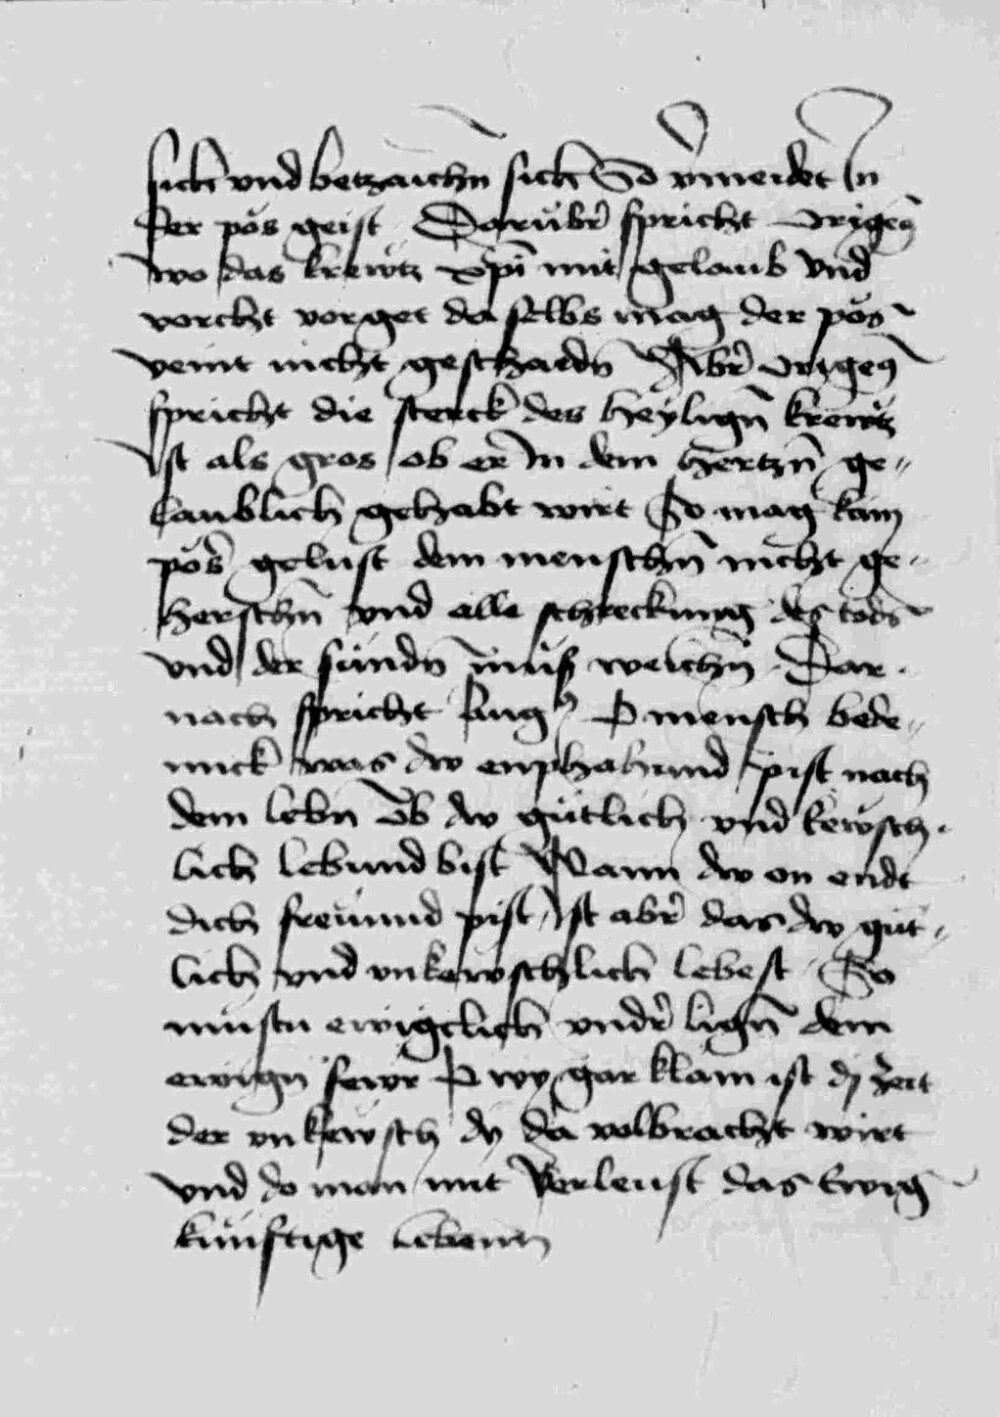 sich vnd betzaichn̄ sich So v̄meidet In
der pös geist Darüber spricht origeȝ
wo das krewtz xp̄i mit gelaub vnd
vorcht vorget da selbs mag der pös
veint nicht geschadn̄ Aber origeȝ
spricht die sterck des heylign̄ krewtz
Ist als gros ob er In dem hertzn̄ ge„
laublich gehabt wirt So mag kain
pöser gelust dem menschn̄ nicht ge„
herschn̄ vnd alle schreckung des tods
vnd der sündn̄ muß weichn̄ Dar
nach spricht Aug9 O mensch bede„
nnck was dw enphahund pist nach
dem lebn̄ Ob dw gütlich vnd kewsch
lich lebund bist Wann dw on endt
dich freuund pist Ist aber das dw güt„
lich vnd vnkewschlich lebest So
mustu ewigclich vnder lign̄ dem
ewign̄ fewr O wy gar klain ist dy zeit
der vnkewsch dy da volbracht wirt
vnd do man mit verleust das Ewig
künftige lebenn